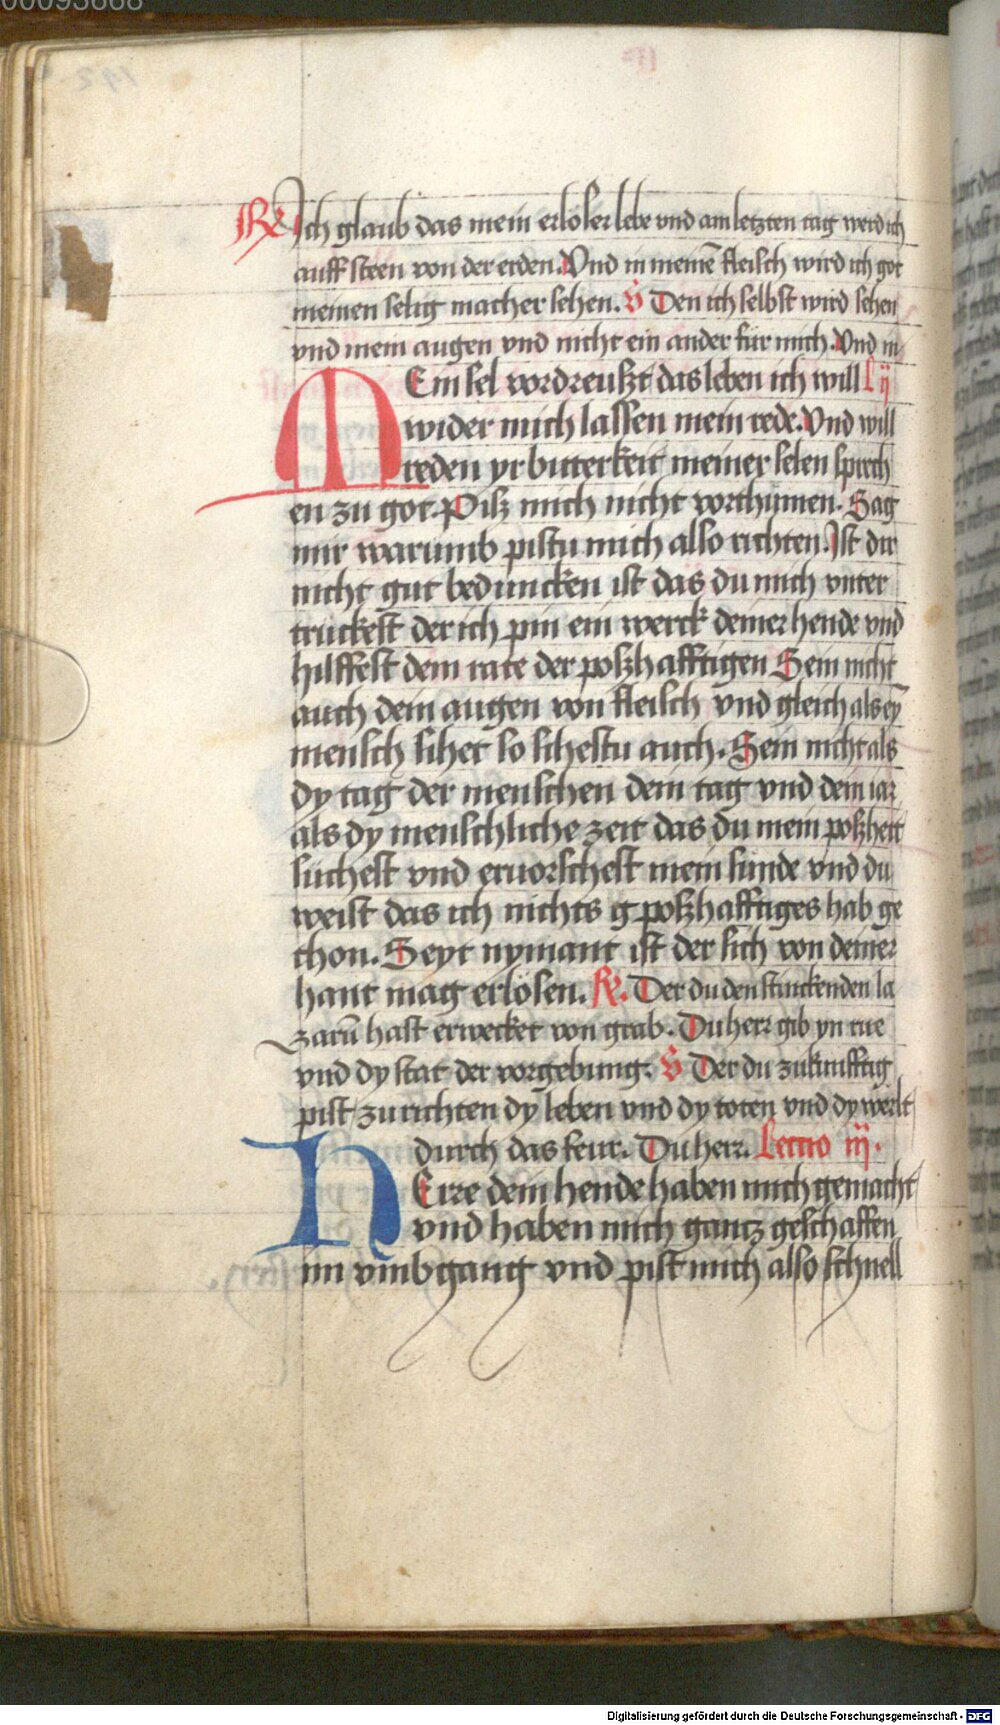 00093868
R Ich glaub das mein erloser lebe vnd am letzten tag werd ich
auff steen von der erden. Vnd in meinē fleisch wird ich got
meinen selig macher sehen. V Den ich selbst wird sehen
vnd mein augen vnd nicht ein ander für mich. Vnd in
MEin sel vordreußt das leben ich will L ij
wider mich lassen mein rede. Vnd will
reden yr bitterkeit meiner selen sprech
en zu got. Piß mich nicht vorthumen. Sag
mir warumb pistu mich also richten. Ist dir
nicht gut beduncken ist das du mich vnter
truckest der ich pin ein werck deiner hende vnd
hilffest dem rate der poßhafftigen Sein nicht
auch dein augen von fleisch vnd gleich als eȳ
mensch sihet so sichestu auch. Sein nicht als
dy tag der menschen dein tag vnd dein iar
als dy menschliche zeit das du mein poßheit
suchest vnd eruorschest mein sunde vnd du
weist das ich nichts poßhafftiges hab ge
thon. Seyt nymant ist der sich von deiner
hant mag erlosen. R. Der du den stinckenden la
zarū hast erwecket von grab. Du herr gib yn rue
vnd dy stat der vorgebung. V Der du zukunfftig
pist zu richten dy leben vnd dy toten vnd dy werlt
durch das feur. Du herr. Lectio iij.
HErre dein hende haben mich gemacht
vnd haben mich gantz geschaffen
im vmbgang vnd pist mich also schnell
Digitalisierung gefördert durch die Deutsche Forschungsgemeinschaft - DFG